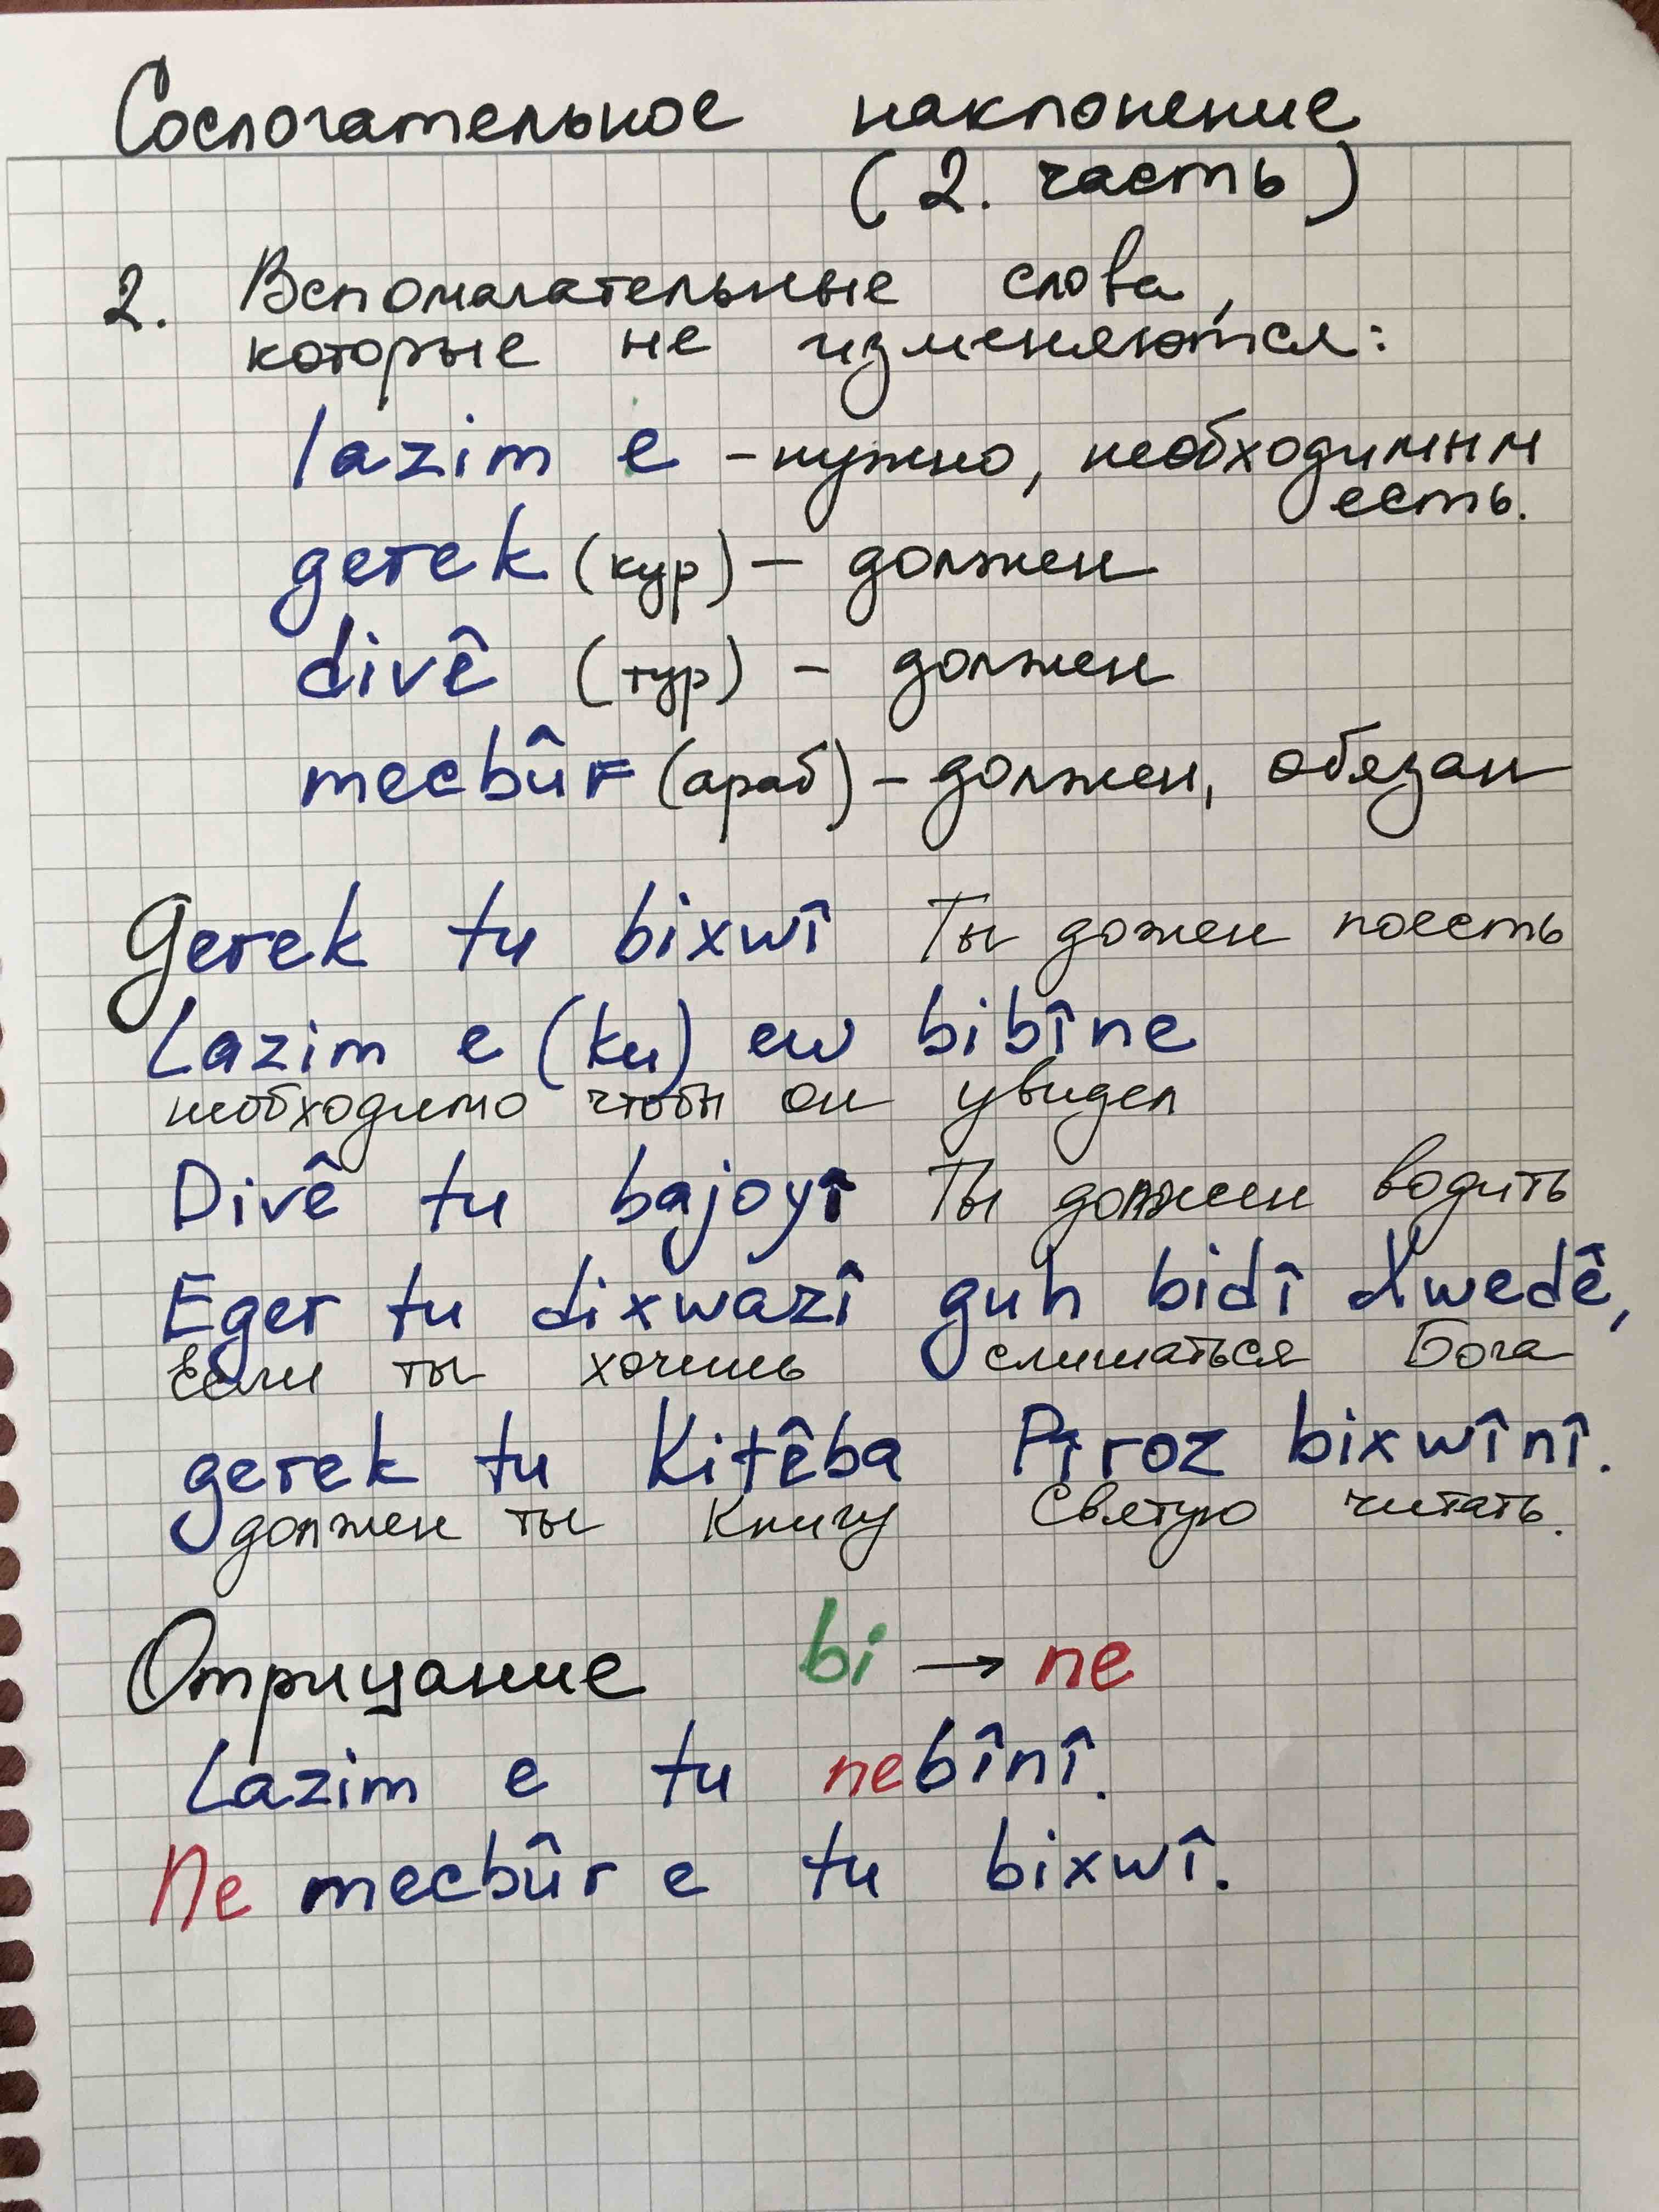 Сослогательное наклонение
(2. часть)
2. Вспомагательные слова,
которые не изменяются:
lazim e - нужно, необходимым
есть.
gerek (кур) - должен
divê (тур) - должен
mecbûr (араб) - должен, обязан
Gerek tu bixwî Ты дожен поесть
Lazim e (ku) ew bibîne
необходимо чтобы он увидел
Divê tu bajoyî Ты должен водить
Eger tu dixwazî guh bidî Xwedê,
Если ты хочешь слишаться Бога
gerek tu Kitêba Pîroz bixwînî.
должен ты Книгу Святую читать.
Отрицание bi → ne
Lazim e tu nebînî.
Ne mecbûr e tu bixwî.